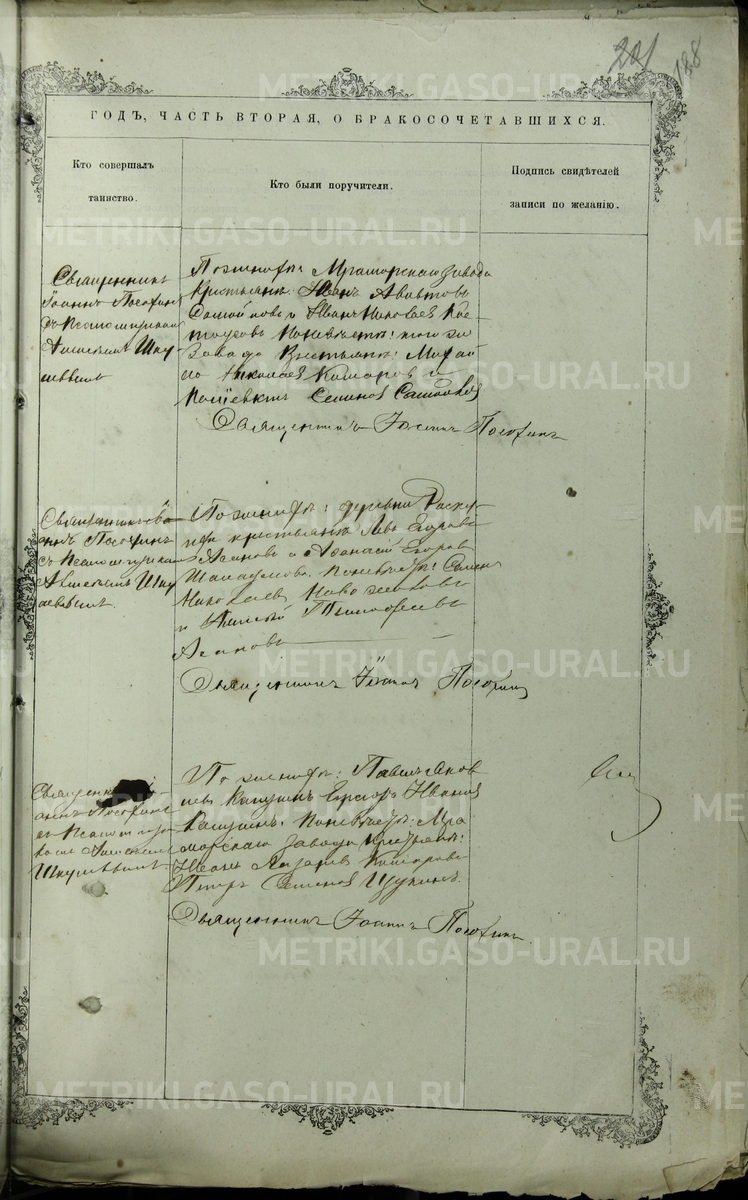 201
188
ГОДЪ, ЧАСТЬ ВТОРАЯ, О БРАКОСОЧЕТАВШИХСЯ.
Кто совершалъ
таинство.
Кто были поручители.
Подпись свидѣтелей
записи по желанію.
Священникъ
Іоаннъ Посохинъ
съ Псаломщикомъ
Алексѣемъ
По женихѣ: Мраморскаго Завода
Крестьяне: Иванъ
и Иванъ Николаев
по невѣстѣ: того же
Завода Крестьяне: Михай
ло Николаев Комаров и
Семенов
Священникъ Іоаннъ Посохинъ
Священникъ Іо
аннъ Посохинъ
съ Псаломщикомъ
Алексѣемъ
По женихѣ: деревни Раску
ихи крестьяне Левъ Егоровъ
Асановъ и Афанасій Егоров
по невѣстѣ: Семен
Николаев Новожиловъ
и Алексѣй Тимофеевъ
Асановъ
Священникъ Іоаннъ Посохинъ
Священникъ Іо
аннъ Посохинъ
съ Псаломщи
комъ Алексѣемъ
По женихѣ: Павелъ Яков
левъ Егоръ Иванов
по невѣстѣ: Мра
морскаго Завода Крестьяне:
Иванъ Лазарев Комаровъ
Петръ Семенов Щукинъ.
Священникъ Іоаннъ Посохинъ
METRIKI.GASO-URAL.RU